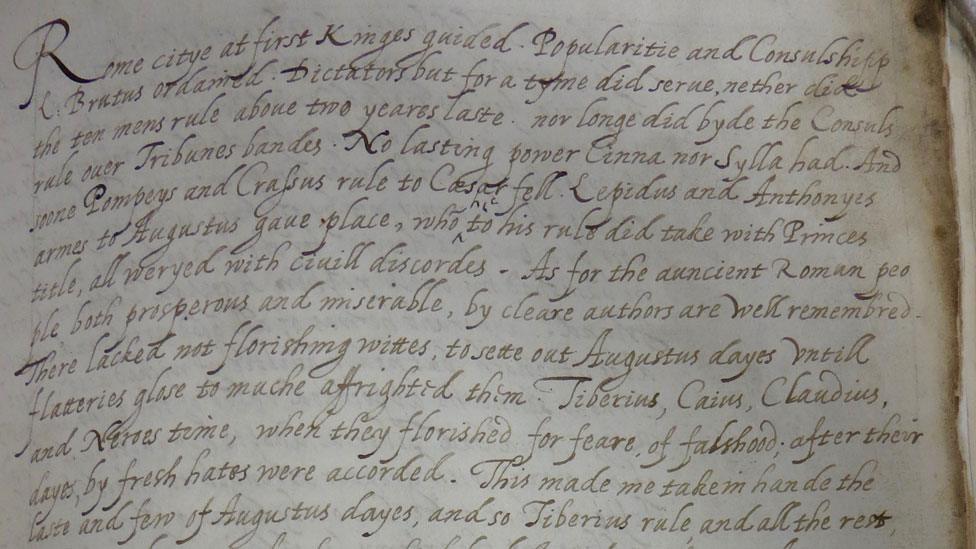 Rome citye at first Kinges guided. Popularitie and Consulshipp
L: Brutus ordained. Dictators but for a tyme did serue, nether did
the ten mens rule aboue two yeares laste. nor longe did byde the Consuls
rule ouer Tribunes bandes. No lasting power Cinna nor Sylla had. And
soone Pompeys and Crassus rule to Cæsar fell. Lepidus and Anthonyes
armes to Augustus gaue place, who to his rule did take with Princes
title, all weryed with ciuill discordes - As for the auncient Roman peo
ple both prosperous and miserable, by cleare authors are well remembred.
There lacked not florishing wittes, to sette out Augustus dayes vntill
flatteries glose to muche affrighted them. Tiberius, Caius, Claudius,
and Neroes time, when they florished for feare, of falshood, after their
dayes, by fresh hates were accorded. This made me take in hande the
laste and few of Augustus dayes, and so Tiberius rule, and all the rest,